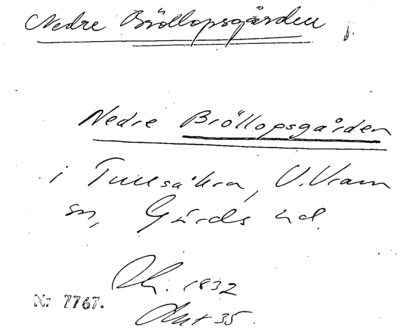 Nedre Bröllopsgården
Nedre Bröllopsgården
i Tullsåkra, V. Vram
sn, Gärds hd.
1832
35.
Nr 7767.